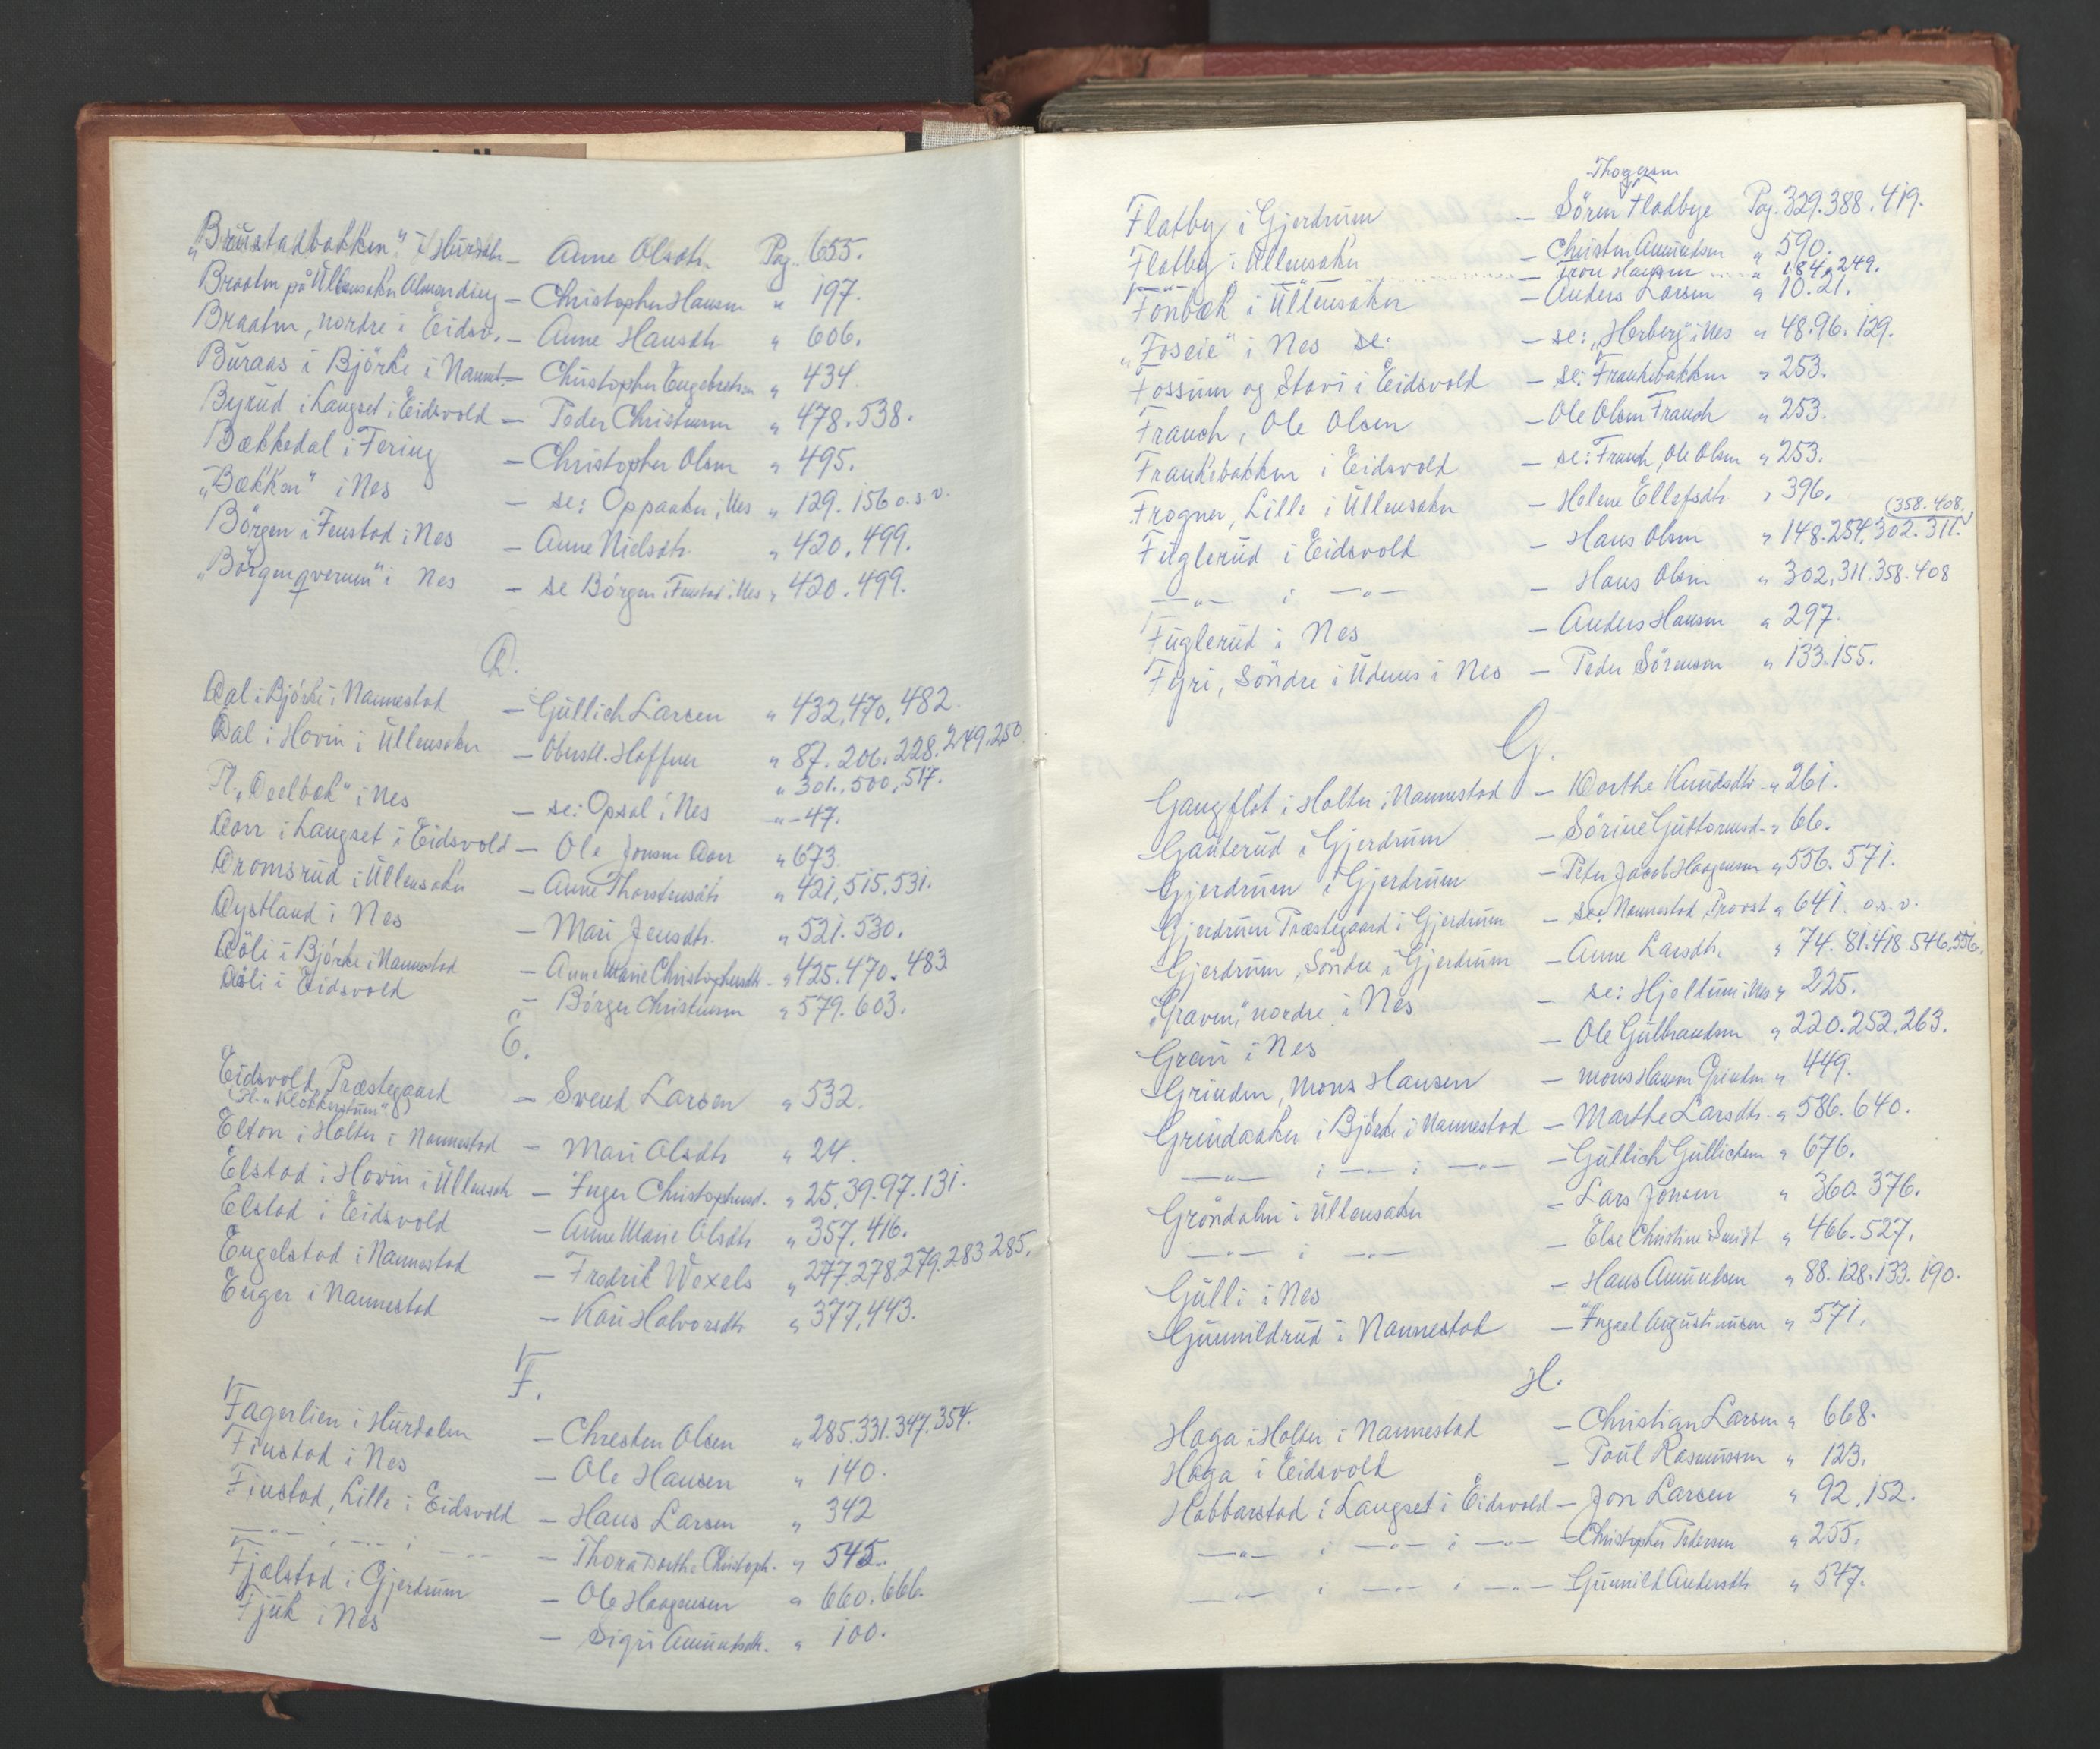 "Brustadbakken" i Hurdalen — Anne Olsdtr. Pag. 655.
Braaten på Ullensaker Almending — Christopher Hansen " 197.
Braaten, nordre i Eidsv. — Anne Hansdtr. " 606.
Buraas i Björke i Nannest. — Christopher Engebretsen " 434.
Byrud i Langset i Eidsvold — Peder Christensen " 478. 538.
Bækkedal i Fering — Christopher Olsen " 495.
"Bækken" i Nes — se: Oppaaker i Nes " 129. 156 o.s.v.
Börgen i Fenstad i Nes — Anne Nielsdtr. " 420. 499.
"Börgenqvernen" i Nes — se Börgen i Fenstad i Nes " 420. 499.
D.
Dal i Björke i Nannestad — Gullich Larsen " 432, 470, 482.
Dal i Hovin i Ullensaker — Oberstl. Haffner " 87. 206. 228. 249. 250
" 301., 500, 517.
Pl. "Deelbæk" i Nes — se: Opsal i Nes —"— 47.
Dorr i Langset i Eidsvold — Ole Jonsen Dorr " 673.
Dromsrud i Ullensaker — Anne Thorstensdtr. " 421, 515. 531.
Dystland i Nes — Mari Jensdtr. " 521. 530.
Döli i Björke i Nannestad — Anne Marie Christophersdtr. " 425. 470. 483.
Döli i Eidsvold — Börger Christensen " 579. 603.
E.
Eidsvold Præstegaard — Svend Larsen " 532.
(Pl. "Klokkerstuen")
Elton i Holter i Nannestad — Mari Olsdtr. " 24.
Elstad i Hovin i Ullensak. — Inger Christophersd. " 25. 39. 97. 131.
Elstad i Eidsvold — Anne Marie Olsdtr. " 357. 416.
Engelstad i Nannestad — Fredrik Wexels " 277. 278, 279. 283 285.
Enger i Nannestad — Kari Halvorsdtr. " 377, 443.
F.
Fagerlien i Hurdalen — Chresten Olsen " 285. 331. 347. 354.
Finstad i Nes — Ole Hansen " 140.
Finstad, Lille i Eidsvold — Hans Larsen " 342
—"— i —"— i —"— — Thora Dorthe Christoph. " 545.
Fjælstad i Gjerdrum — Ole Haagensen " 660. 666.
Fjuk i Nes — Sigri Amundsdtr. " 100.
Thogersen
Flatby i Gjerdrum — Sören Fladbye Pag. 329. 388. 419.
Flatby i Ullensaker — Christen Amundsen " 590.
—"— — Tron Hansen " 184. 249.
Fonbæk i Ullensaker — Anders Larsen " 10. 21.
"Foseie" i Nes se: — se: "Herberg" i Nes " 48. 96. 129.
Fossum og Stavi i Eidsvold — se: Frankebakken " 253.
Frauch, Ole Olsen — Ole Olsen Frauch " 253.
Frankebakken i Eidsvold — se: Frauch, Ole Olsen " 253.
Frogner, Lille i Ullensaker — Helene Ellefsdtr. " 396.
Fuglerud i Eidsvold — Hans Olsen " 148. 254. 302. 311. (358. 408.)
—"— i —"— — Hans Olsen " 302, 311. 358. 408
Fuglerud i Nes — Anders Hansen " 297.
Fyri, Söndre i Udenes i Nes — Peder Sörensen " 133. 155.
G.
Gangflöt i Holter i Nannestad — Dorthe Knudsdtr. " 261.
Gauterud i Gjerdrum — Sörine Guttormsd. " 66.
Gjerdrum i Gjerdrum — Peter Jacob Haagensen " 556. 571.
Gjerdrum Præstegaard i Gjerdrum — se: Nannestad Provst " 641. o.s.v.
Gjerdrum, Söndre i Gjerdrum — Anne Larsdtr. " 74. 81. 418. 546. 556.
"Graven," nordre i Nes — se: Hjeltum i Nes " 225.
Grau i Nes — Ole Gulbrandsen " 220. 252. 263.
Grinden, Mons Hansen — Mons Hansen Grinden " 449.
Grindaaker i Björke i Nannestad — Marthe Larsdtr. " 586. 640.
—"— i —"— i —"— — Gullich Gullichsen " 676.
Gröndalen i Ullensaker — Lars Jonsen " 360. 376.
—"— i —"— — Else Christine Smidt " 466. 527.
Gulli i Nes — Hans Amundsen " 88. 128. 133. 190.
Gunnildrud i Nannestad — Ingael Augustinusen " 571.
H.
Haga i Holter i Nannestad — Christian Larsen " 668.
Haga i Eidsvold — Poul Rasmussen " 123.
Habbarstad i Langset i Eidsvold — Jon Larsen " 92, 152.
—"— i —"— i —"— — Christopher Pedersen " 255.
—"— i —"— i —"— — Gunnild Andersdtr. " 547.